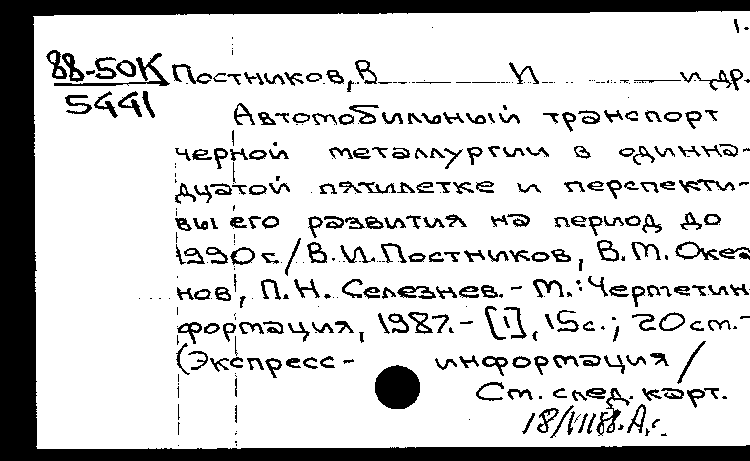 1.
88-50К Постников, В И и др.
5441
Автомобильный транспорт
черной металлургии в одинна-
дцатой пятилетке и перспекти-
вы его развития на период до
1990 г. / В.И. Постников, В.М. Океа
нов, П.Н. Селезнев. - М.: Черметин
формация, 1987. - [1], 15 с.; 20 см. -
(Экспресс - информация /
См. след. карт.
18/VII 88. А.